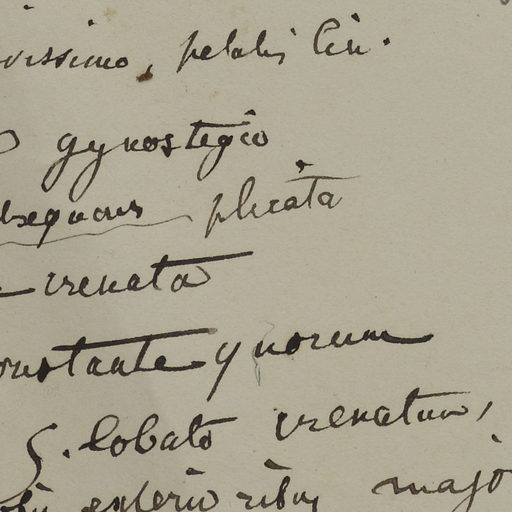 vissimo, petalis lin.
gynostegio
plicata
crenata
onstante quorum
5. lobato crenatum,
exterioribus majo